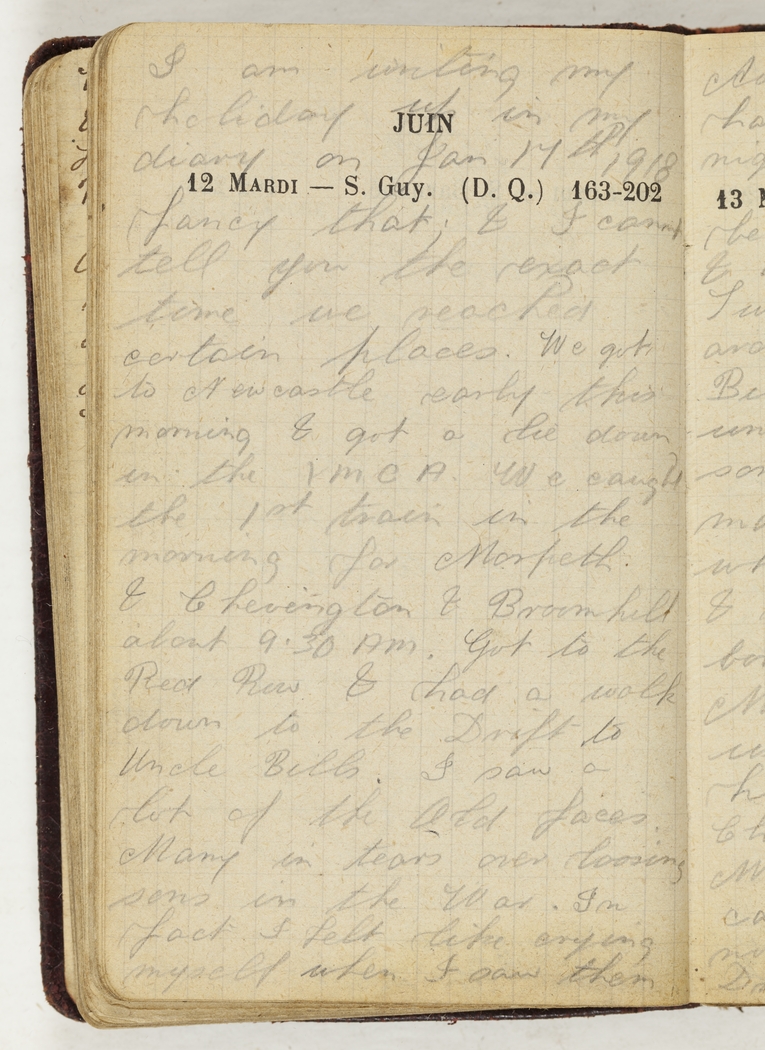 I am writing my
holiday up in my
JUIN
diary on Jan 17th 1918
12 MARDI — S. Guy. (D. Q.) 163-202
fancy that; & I cannt
tell you the exact
time we reached
certain places. We got
to Newcastle early this
morning & got a lie down
in the YMCA. We caught
the 1st train in the
morning for Morpeth.
& Chevington & Broomhill
about 9.30 AM. Got to the
Red Row & had a walk
down to the Drift to
Uncle Bills. I saw a
lot of the Old faces.
Many in tears over loosing
sons in the War. In
fact I felt like crying
myself when I saw them
13
&